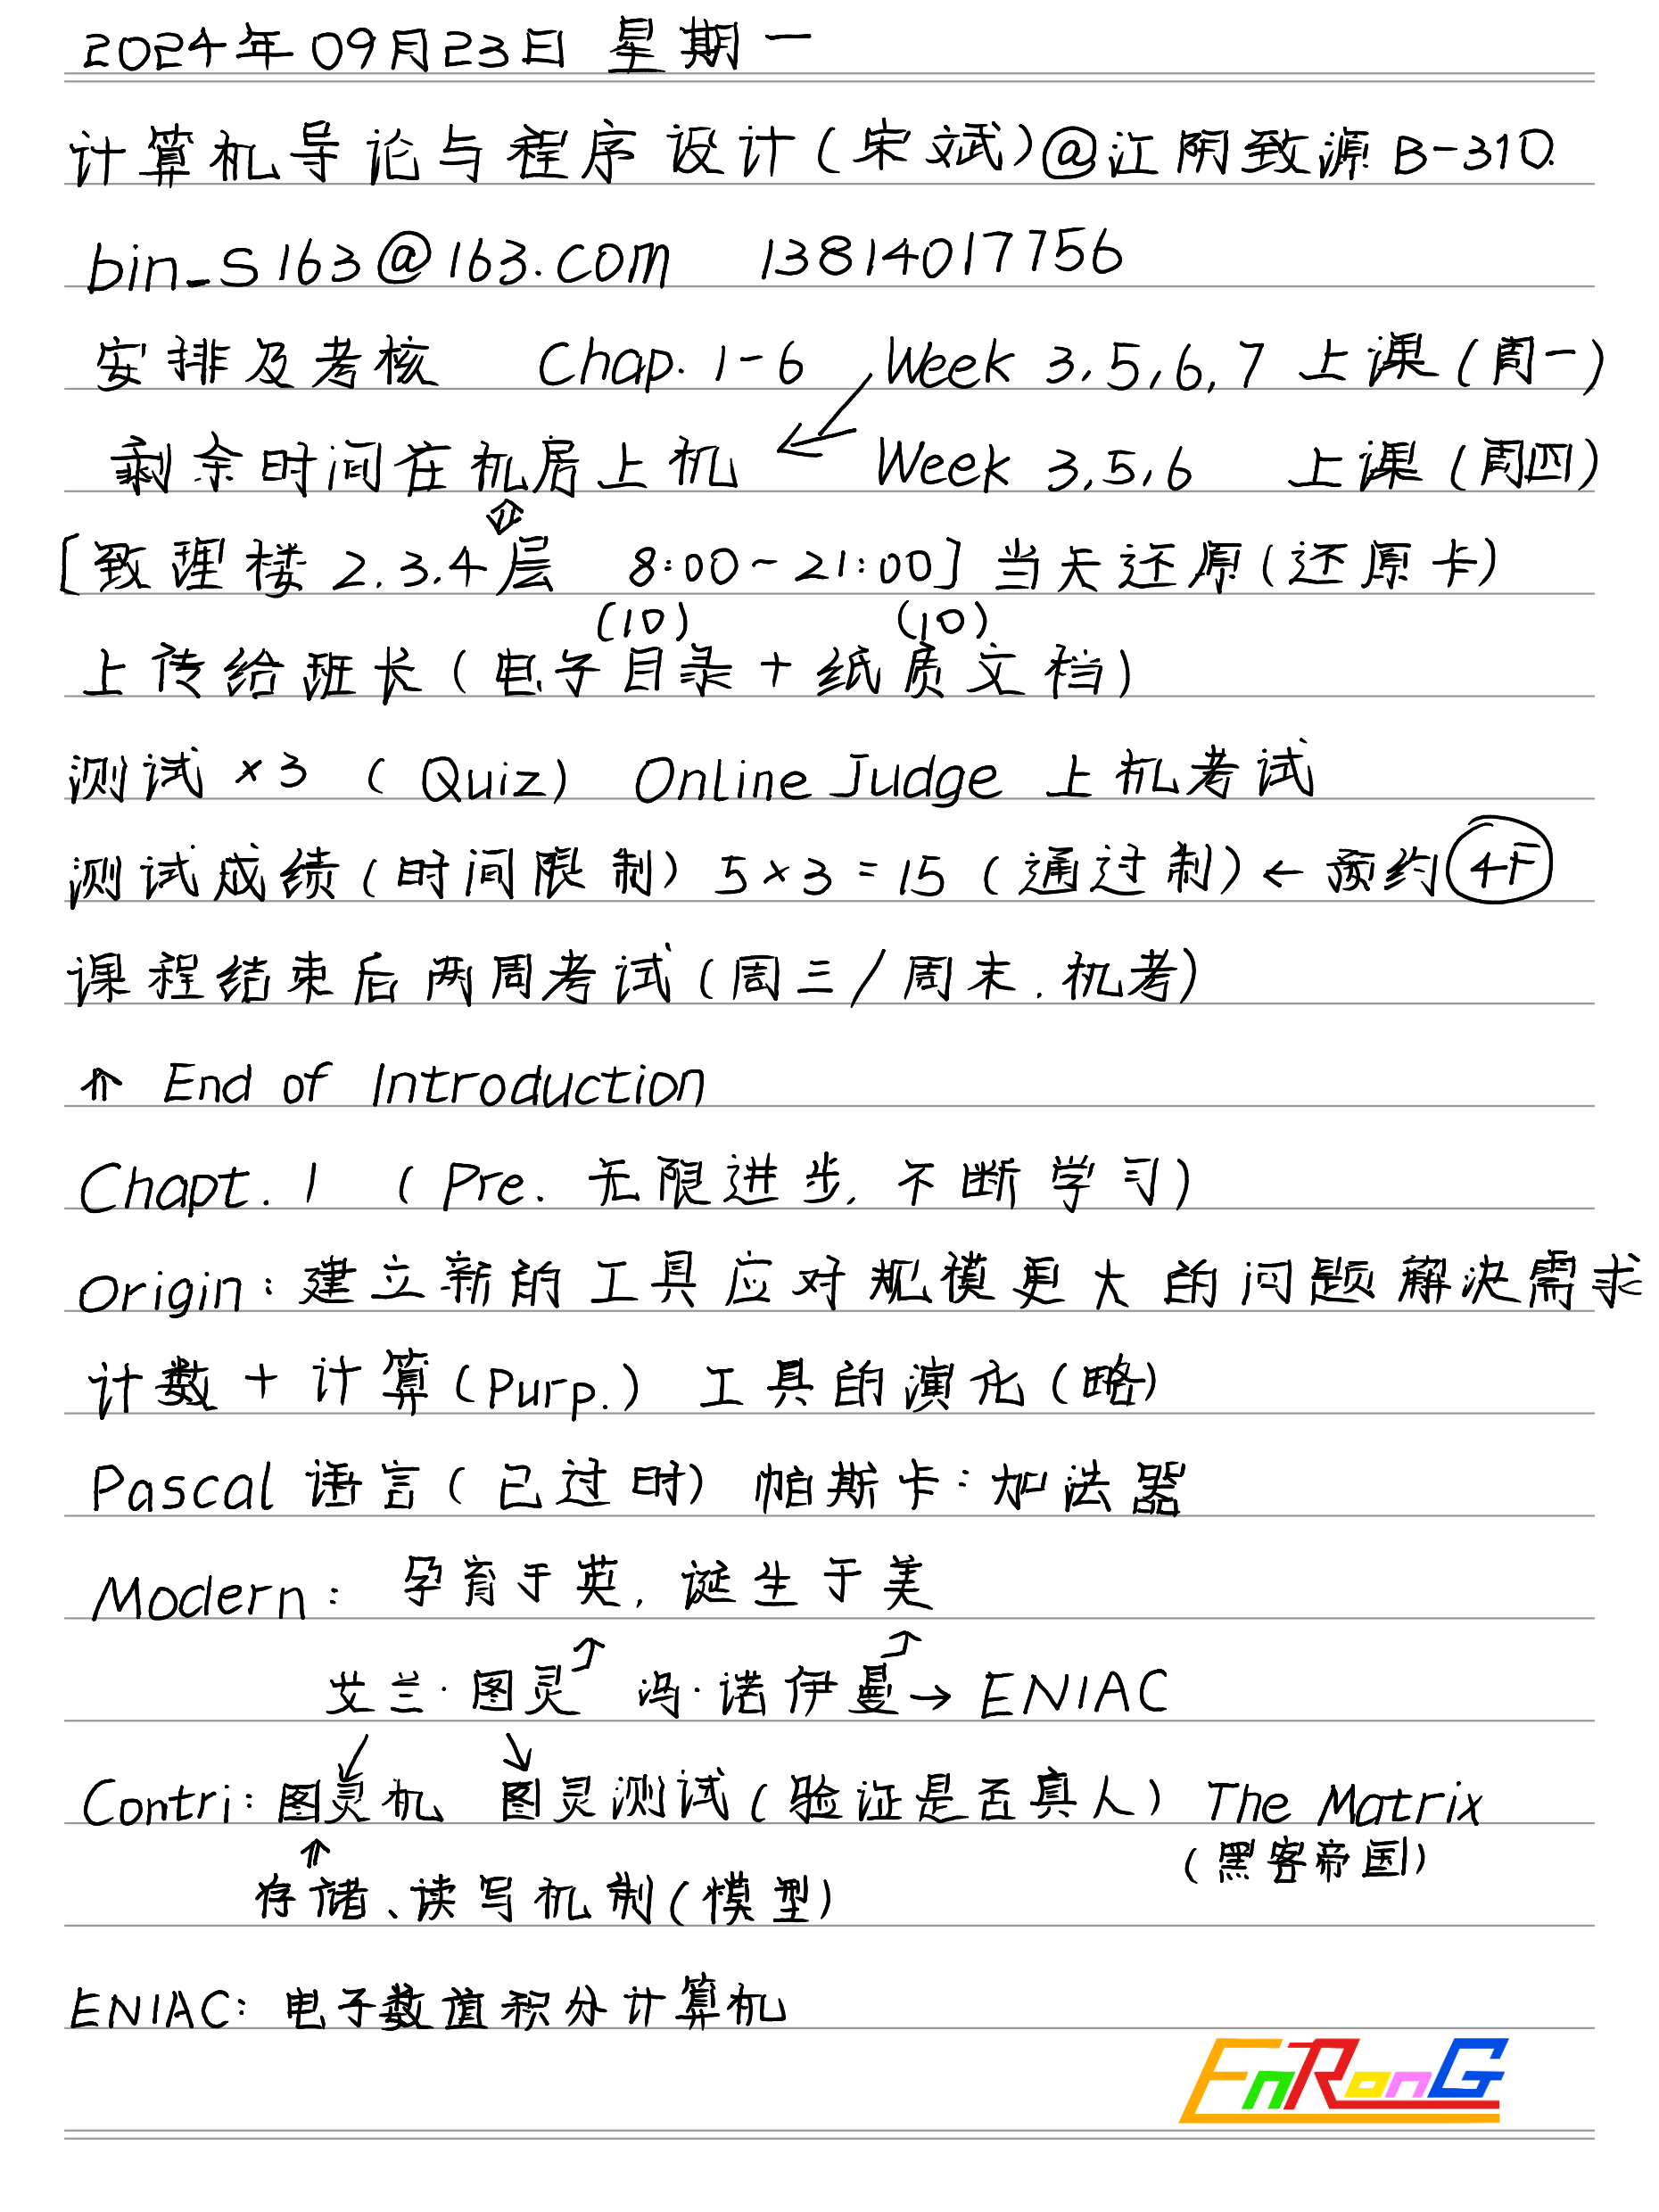 2024年09月23日 星期一
计算机导论与程序设计(宋斌)@江阴致源B-310.
bin_s163@163.com 13814017756
安排及考核 Chap.1-6 Week 3,5,6,7 上课(周一)
剩余时间在机房上机 ← Week 3,5,6 上课(周四)
⇕
[致理楼2.3.4层 8:00~21:00]当天还原(还原卡)
(10) (10)
上传给班长(电子目录+纸质文档)
测试×3 (Quiz) Online Judge 上机考试
测试成绩(时间限制)5×3=15(通过制)←预约4F
课程结束后两周考试(周三/周末.机考)
⇑ End of Introduction
Chapt.1 (Pre. 无限进步,不断学习)
Origin:建立新的工具应对规模更大的问题解决需求
计数+计算(Purp.) 工具的演化(略)
Pascal语言(已过时) 帕斯卡:加法器
Modern: 孕育于英,诞生于美
艾兰·图灵 冯·诺伊曼→ENIAC
Contri:图灵机 图灵测试(验证是否真人) The Matrix
(黑客帝国)
⇑
存储、读写机制(模型)
ENIAC: 电子数值积分计算机
EnRonG